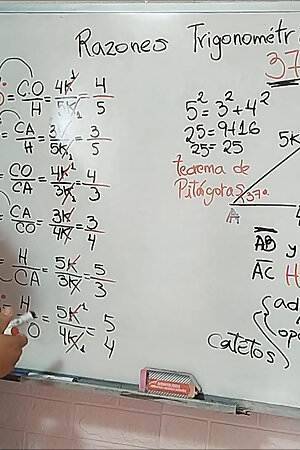 Razones Trigonométri
37
= CO/H = 4K/5K = 4/5
= CA/H = 3K/5K = 3/5
= CO/CA = 4K/3K = 4/3
= CA/CO = 3K/4K = 3/4
= H/CA = 5K/3K = 5/3
H/CO = 5K/4K = 5/4
5² = 3² + 4²
25 = 9+16
25 = 25
teorema de
Pitágoras
5K
37°
A
4
AB y
AC H
catetos